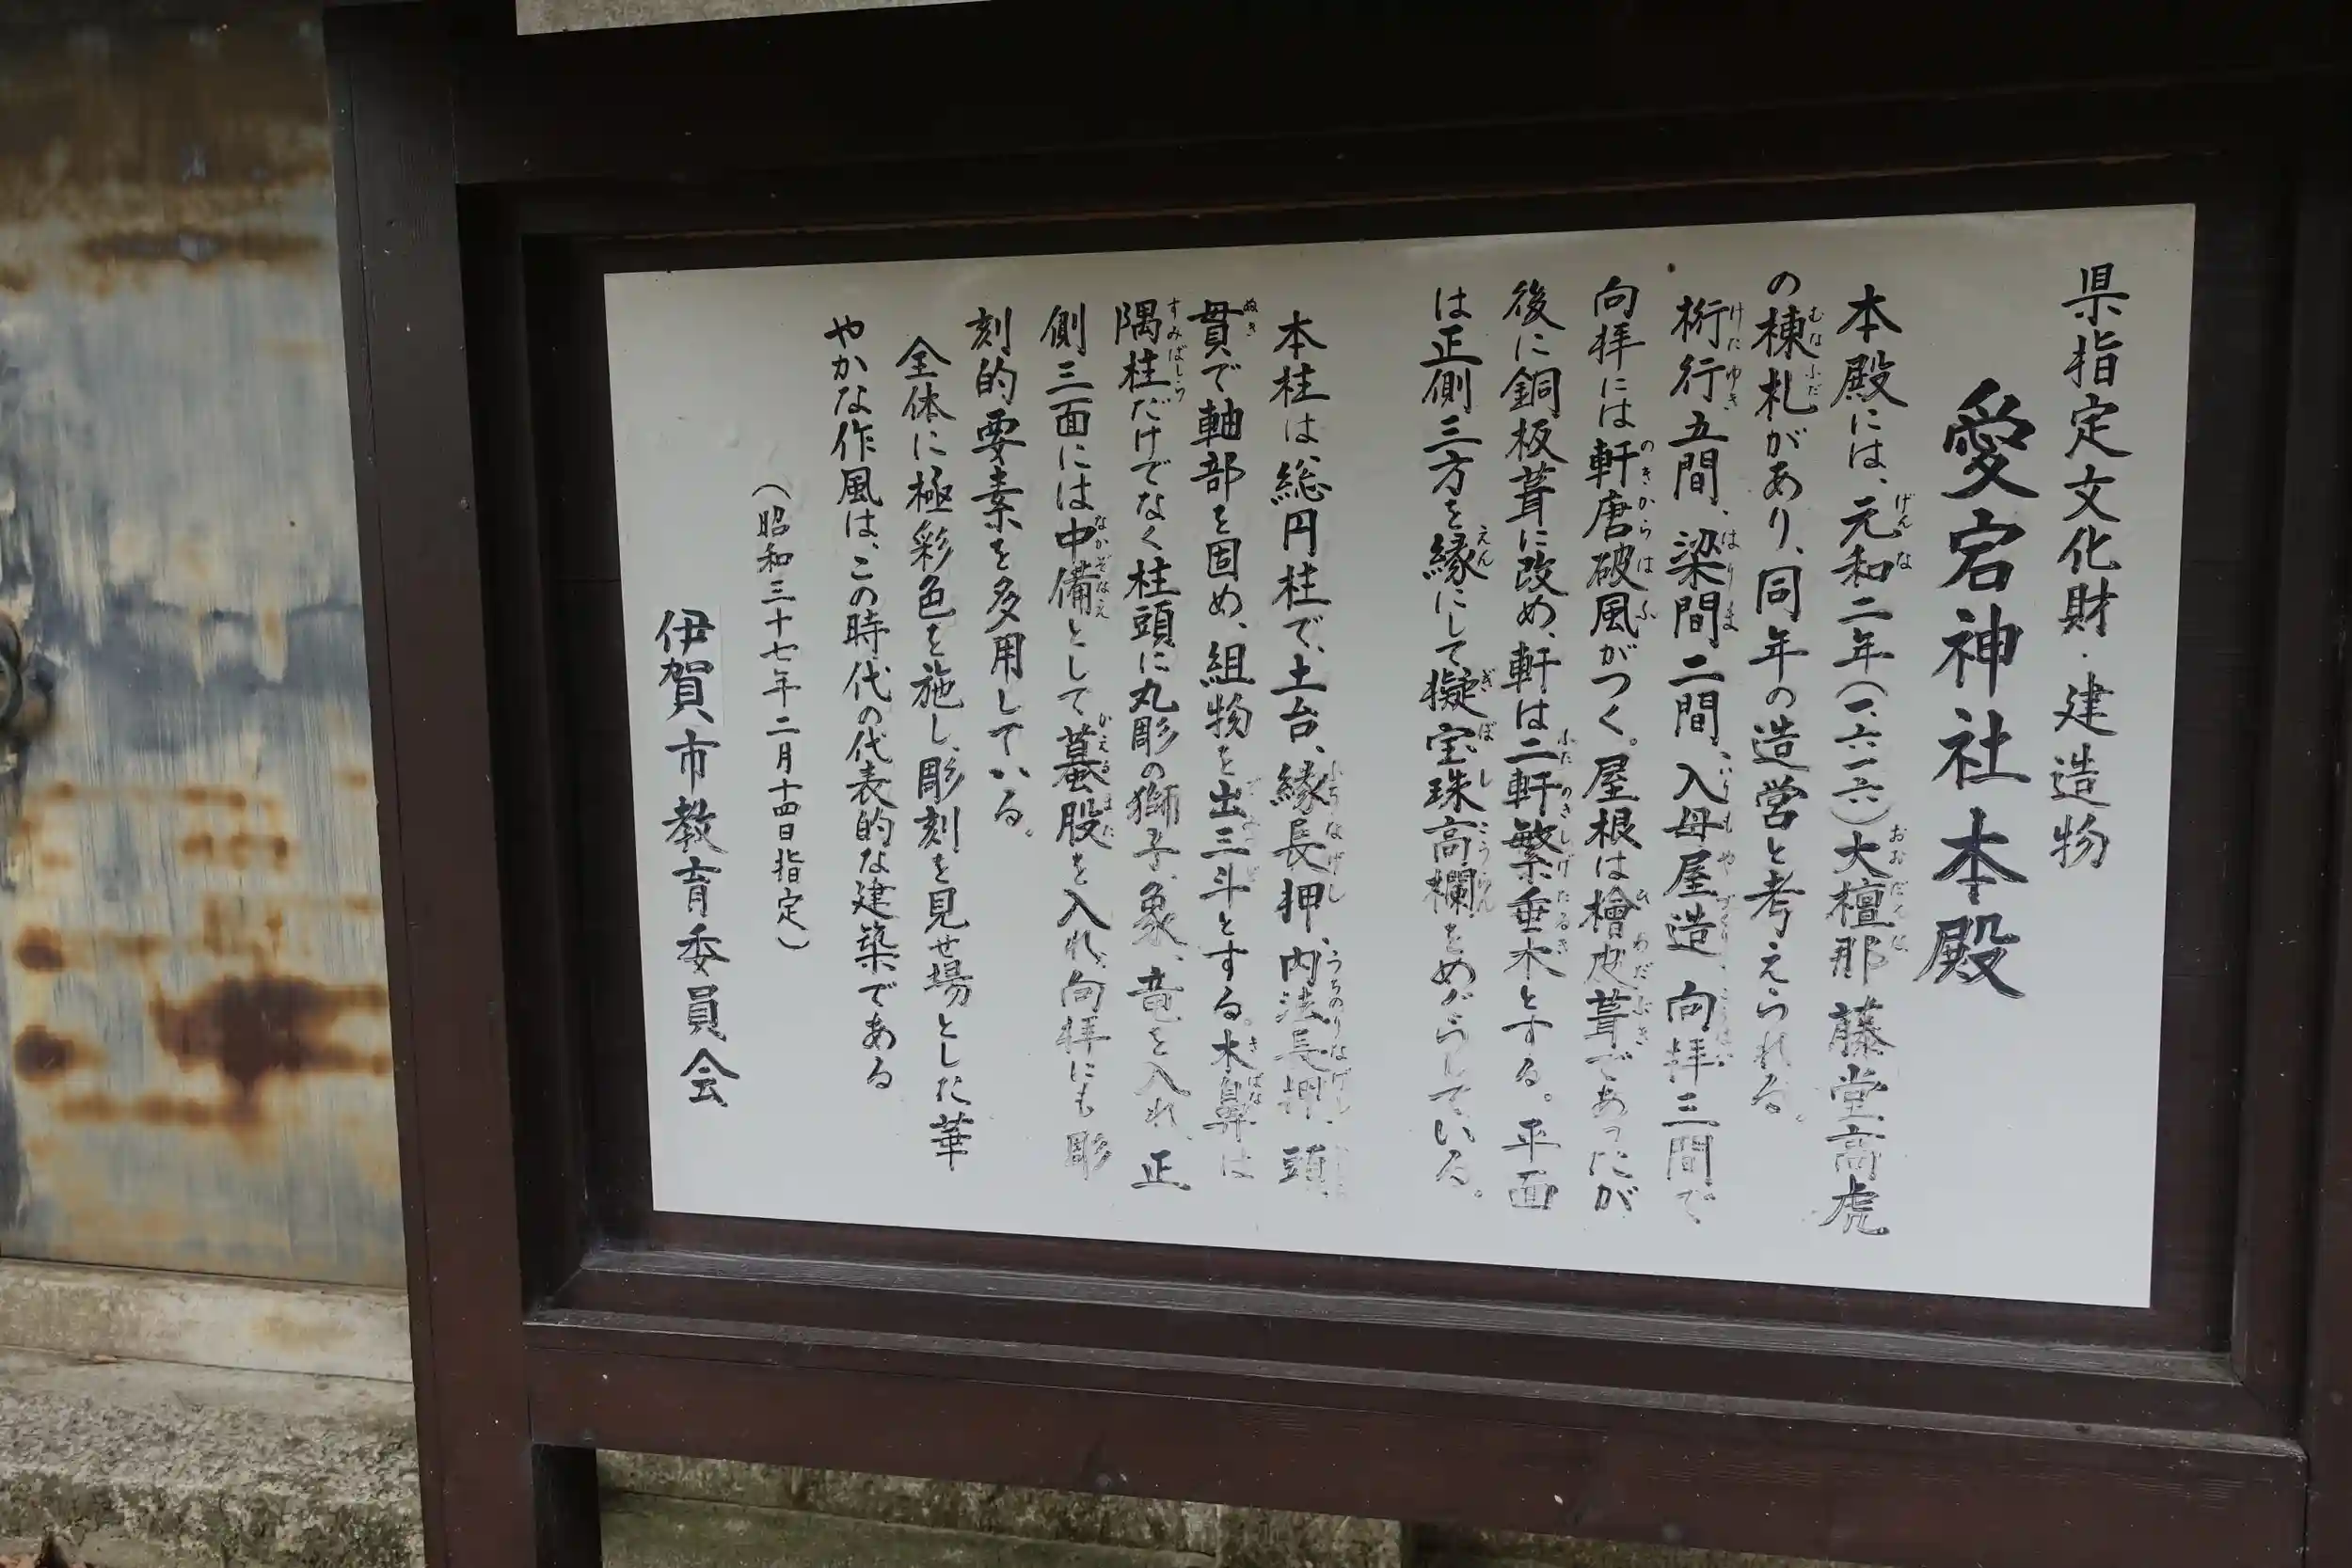 県指定文化財・建造物
愛宕神社本殿
本殿には、元和二年(一六一六)大檀那藤堂高虎
の棟札があり、同年の造営と考えられる。
桁行五間、梁間二間、入母屋造、向拝三間で
向拝には軒唐破風がつく。屋根は檜皮葺であったが
後に銅板葺に改め、軒は二軒繁垂木とする。平面
は正側三方を縁にして擬宝珠高欄をめぐらしている。
本柱は、総円柱で、土台、縁長押、内法長押、頭
貫で軸部を固め、組物を出三斗とする。木鼻は
隅柱だけでなく柱頭に丸彫の獅子、象、竜を入れ、正
側三面には中備として蟇股を入れ、向拝にも彫
刻的要素を多用している。
全体に極彩色を施し、彫刻を見せ場とした華
やかな作風は、この時代の代表的な建築である
(昭和三十七年二月十四日指定)
伊賀市教育委員会